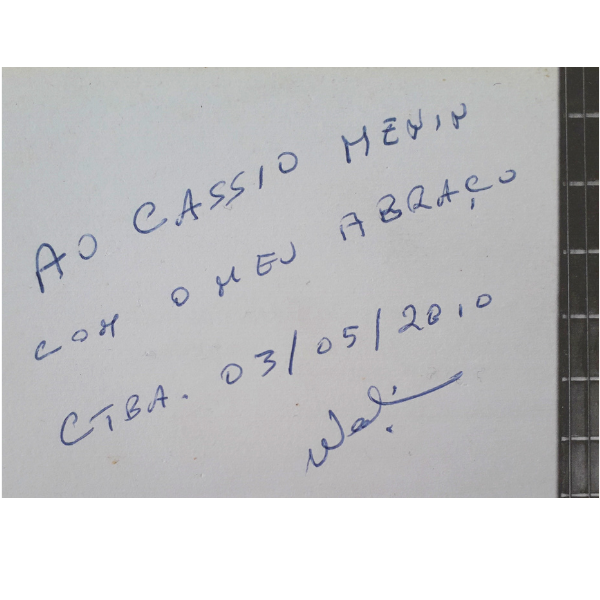 AO CASSIO MENIN
COM O MEU ABRAÇO
CTBA. 03/05/2010